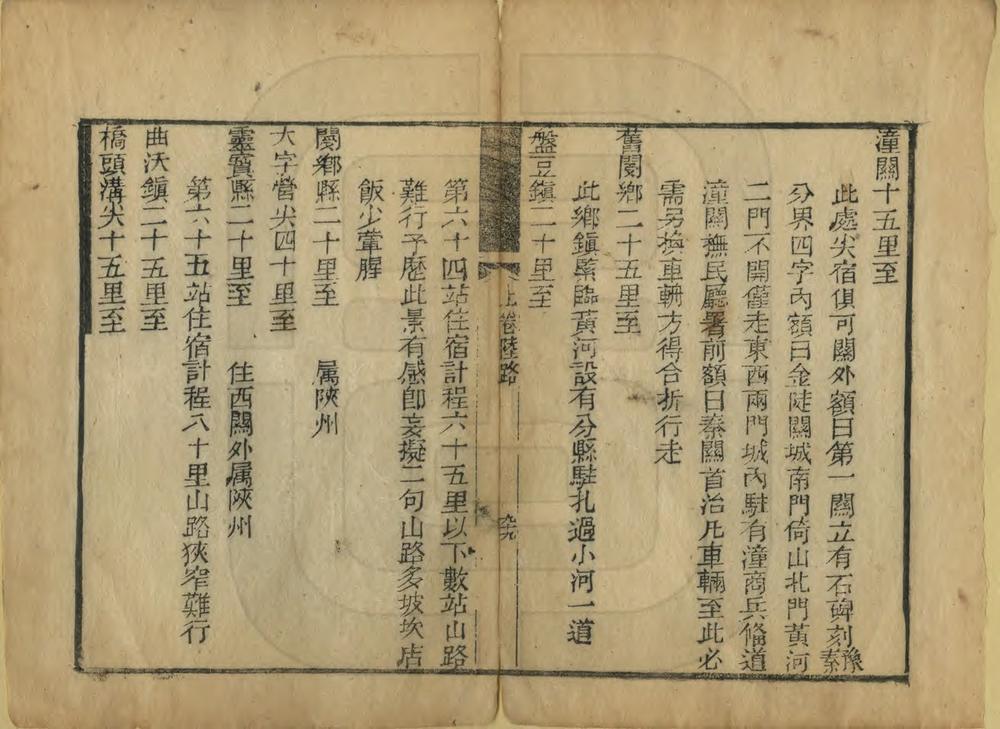 潼關十五里至
此處尖宿俱可關外額曰第一關立有石碑刻豫秦
分界四字內額曰金陡關城南門倚山北門黃河
二門不開僅走東西兩門城內駐有潼商兵備道
潼關撫民廳署前額曰秦關首治凡車輛至此必
需另換車輛方得合折行走
舊閿鄉二十五里至
此鄉鎮緊臨黃河設有分縣駐扎過小河一道
盤豆鎮二十里至
上卷陸路
第六十四站住宿計程六十五里以下數站山路
難行予歷此景有感卽妄擬二句山路多坡坎店
飯少葷腥
閿鄉縣二十里至 属陝州
大字營尖四十里至
靈寳縣二十里至 住西關外属陝州
第六十五站住宿計程八十里山路狹窄難行
曲沃鎮二十五里至
橋頭溝尖十五里至